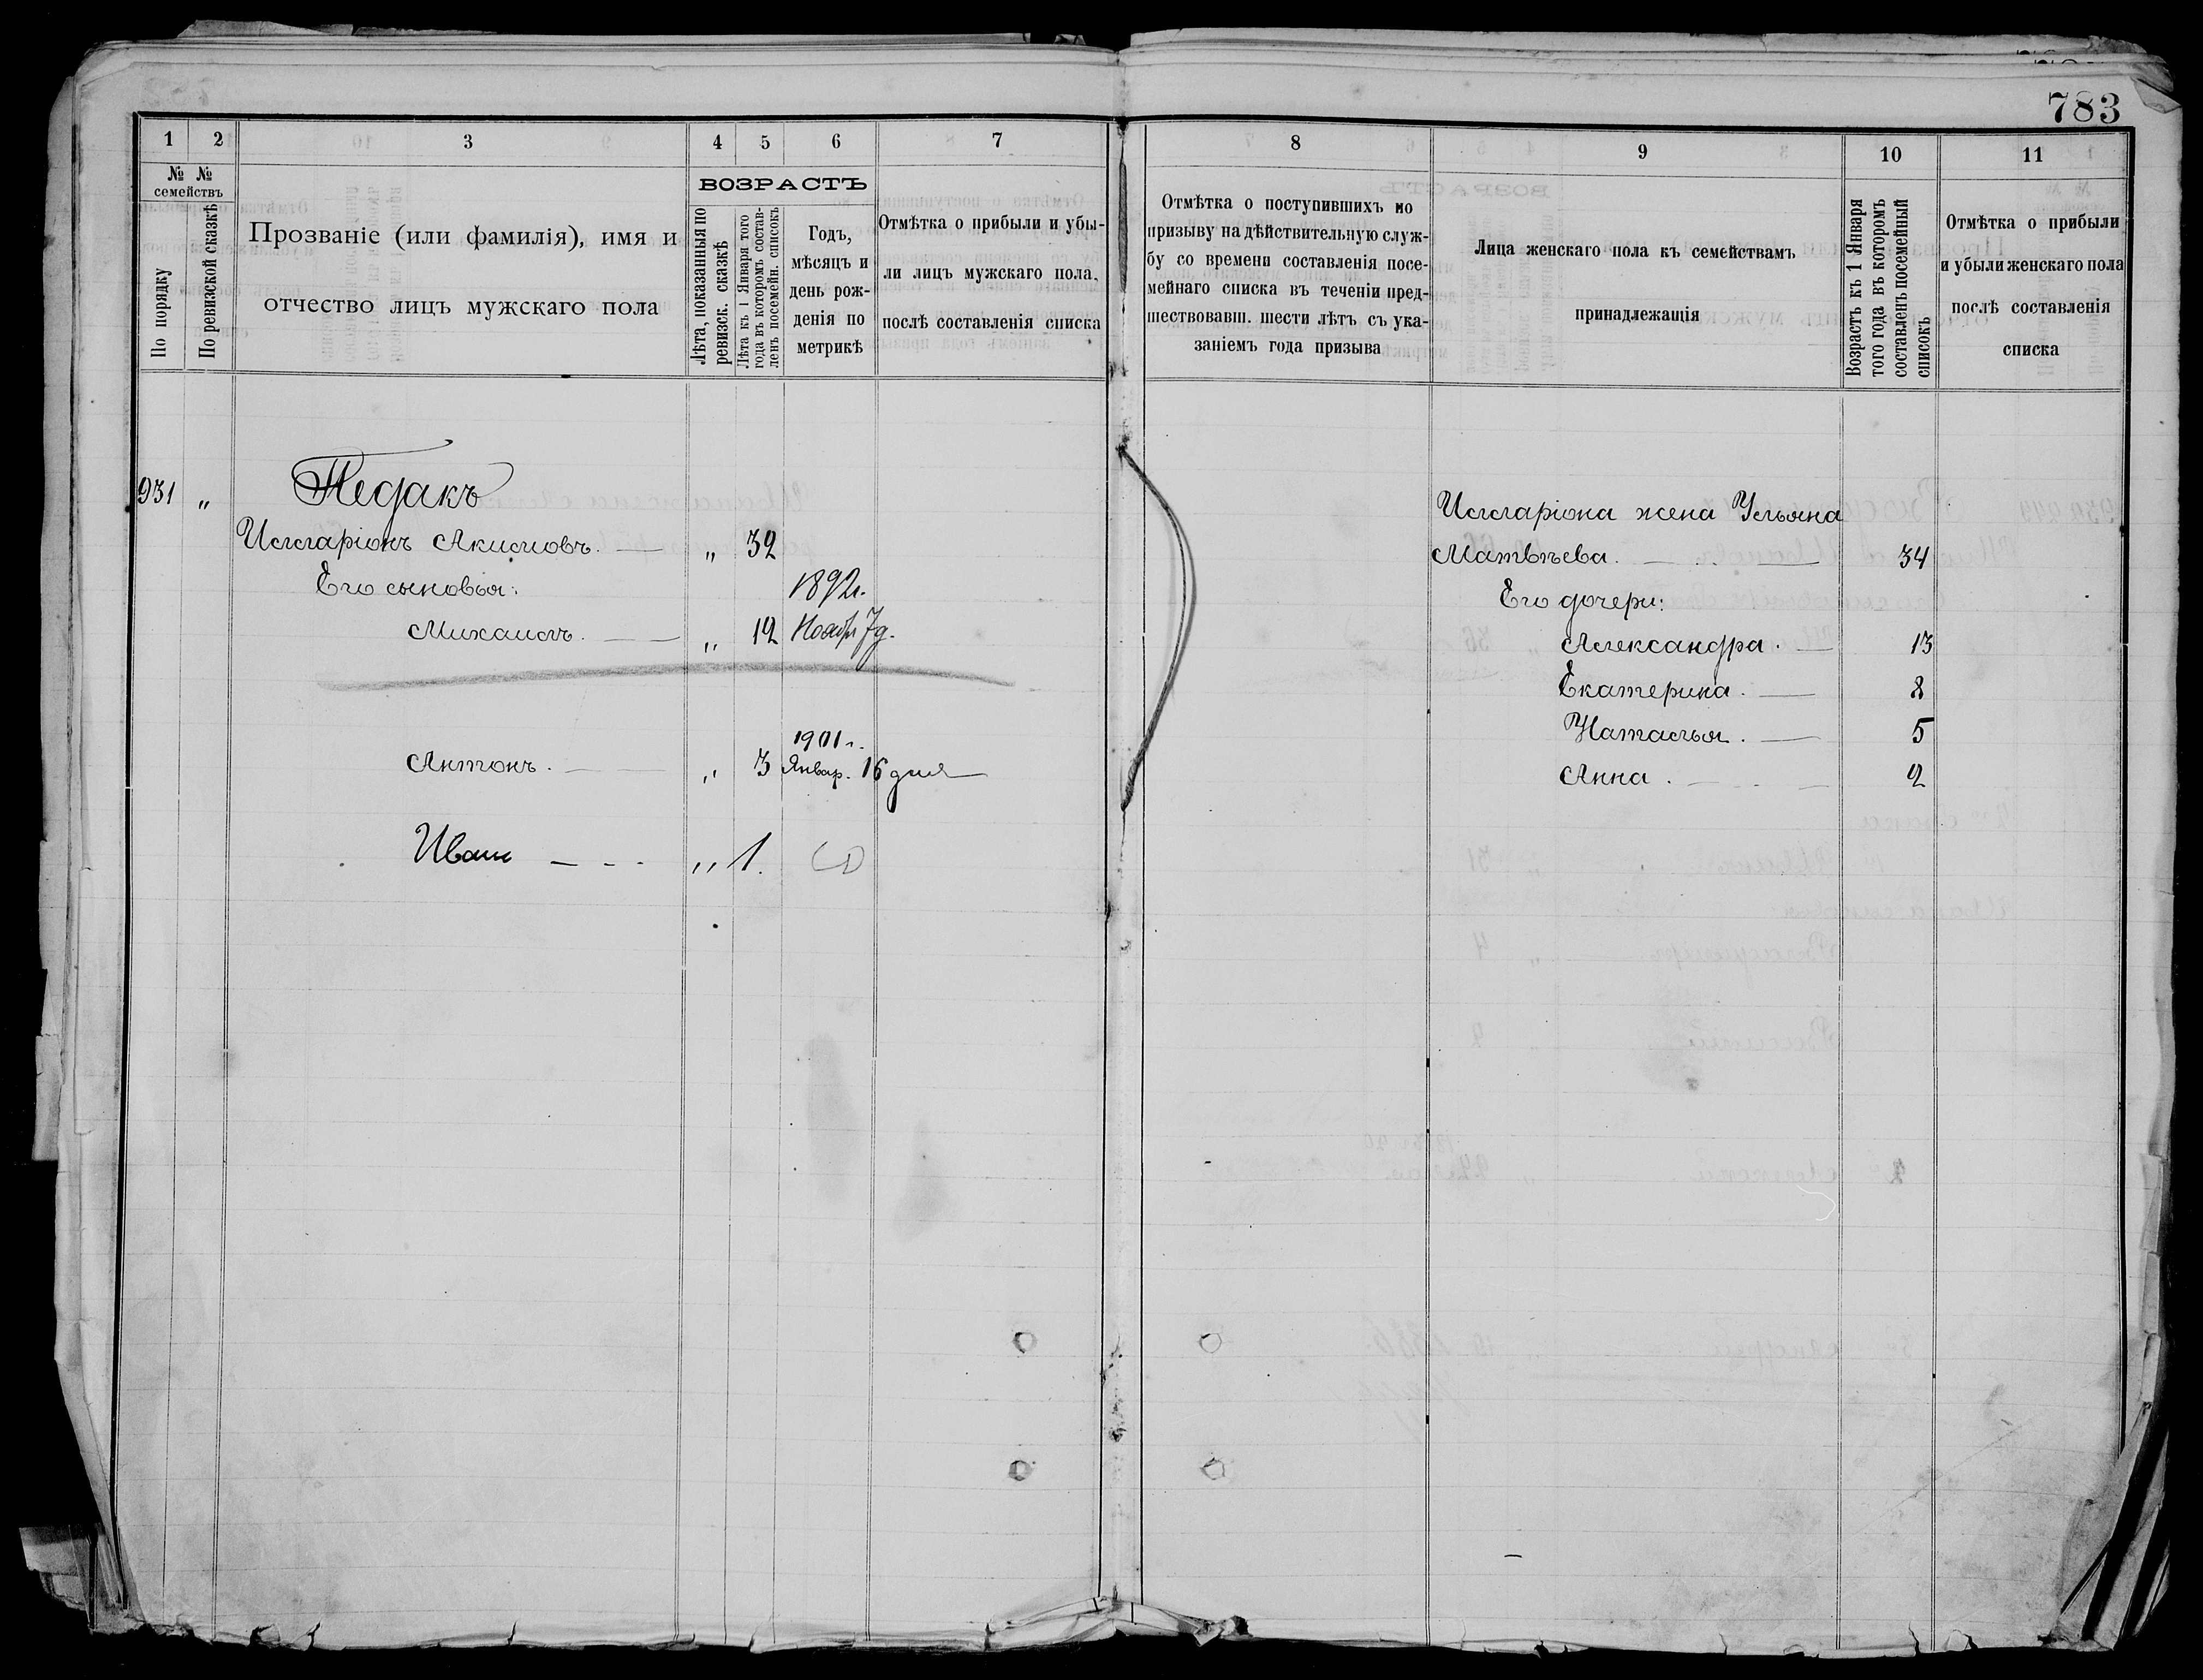 783
1 2 3 4 5 6 7
№ № семействъ
По порядку
По ревизской сказкѣ
Прозваніе (или фамилія), имя и
отчество лицъ мужскаго пола
ВОЗРАСТЪ
Лѣта, показанныя по
ревизск. сказкѣ
Лѣта къ 1 Января того
года въ которомъ состав-
ленъ посемейн. списокъ
Годъ,
мѣсяцъ и
день рож-
денія по
метрикѣ
Отмѣтка о прибыли и убы-
ли лицъ мужскаго пола,
послѣ составленія списка
931 „ Педакъ
Илларіонъ Акимовъ. — „ 32
Его сыновья:
1892г.
Михаилъ. — „ 12 Ноябр 7д.
1901г.
Антонъ. — „ 3 Январ. 16 дня
Иван - - - „ 1.
8 9 10 11
Отмѣтка о поступившихъ по
призыву на дѣйствительную служ-
бу со времени составленія посе-
мейнаго списка въ теченіи пред-
шествовавш. шести лѣтъ съ ука-
заніемъ года призыва
Лица женскаго пола къ семействамъ
принадлежащія
Возрастъ къ 1 Января
того года въ которомъ
составленъ посемейный
списокъ
Отмѣтка о прибыли
и убыли женскаго пола
послѣ составленія
списка
Илларіона жена Ульяна
Матвѣева. — 34
Его дочери:
Александра. — 13
Екатерина. — 8
Наталья. — 5
Анна. — 2